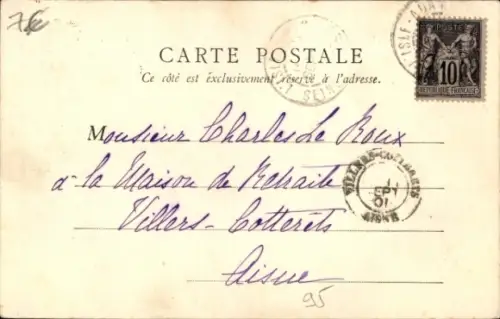 CARTE POSTALE
Ce côté est exclusivement réservé à l'adresse.
POSTE
10
REPUBLIQUE FRANÇAISE
Monsieur Charles Le Roux
à la Maison de Retraite
Villers-Cotterêts
Aisne
VILLERS-COTTERETS
SEPT
01
AISNE
95